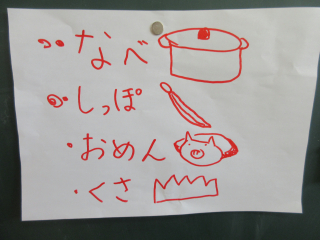 ・なべ
・しっぽ
・おめん
・くさ